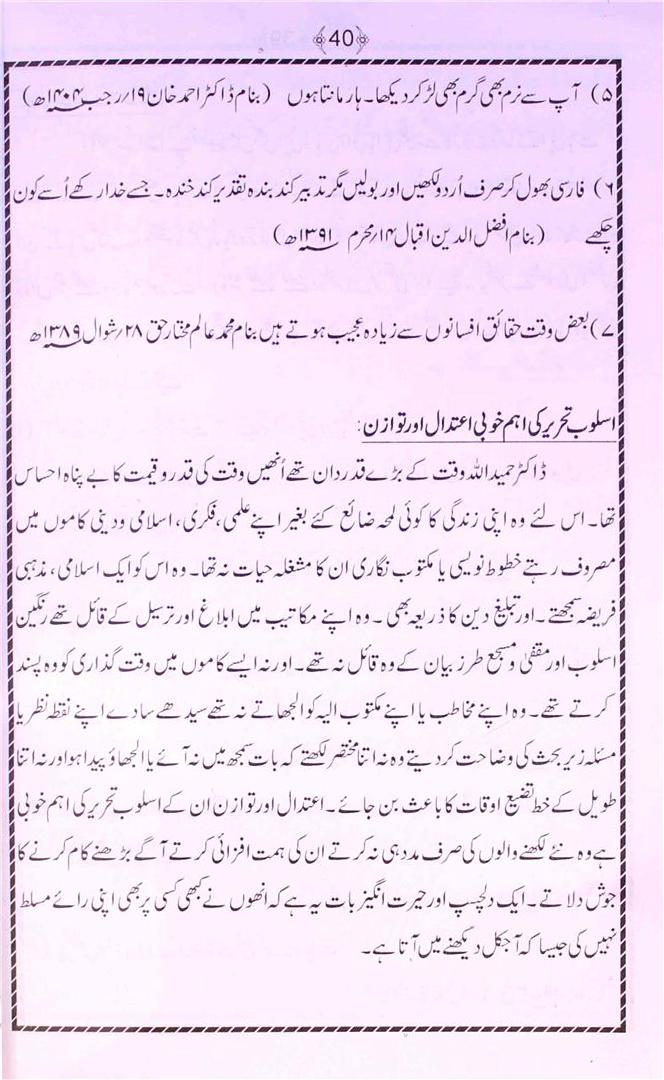 40
۵) آپ سے نرم بھی گرم بھی لڑ کر دیکھا۔ ہار مانتا ہوں (بنام ڈاکٹر احمد خان ۱۹/رجب ۱۴۰۴ھ)
۶) فارسی بھول کر صرف اُردو لکھیں اور بولیں مگر تدبیر کند بندہ تقدیر کند خندہ۔ جسے خدا رکھے اُسے کون
چکھے (بنام افضل الدین اقبال ۱۴/محرم ۱۳۹۱ھ)
۷) بعض وقت حقائق افسانوں سے زیادہ عجیب ہوتے ہیں بنام محمد عالم مختار حق ۲۸/شوال ۱۳۸۹ھ
اسلوب تحریر کی اہم خوبی اعتدال اور توازن:
ڈاکٹر حمید اللہ وقت کے بڑے قدردان تھے اُنھیں وقت کی قدر و قیمت کا بے پناہ احساس
تھا۔ اس لئے وہ اپنی زندگی کا کوئی لمحہ ضائع کئے بغیر اپنے علمی، فکری، اسلامی و دینی کاموں میں
مصروف رہتے خطوط نویسی یا مکتوب نگاری ان کا مشغلہ حیات نہ تھا۔ وہ اس کو ایک اسلامی، مذہبی
فریضہ سمجھتے۔ اور تبلیغ دین کا ذریعہ بھی۔ وہ اپنے مکاتیب میں ابلاغ اور ترسیل کے قائل تھے رنگین
اسلوب اور مقفیٰ و مسجع طرز بیان کے وہ قائل نہ تھے۔ اور نہ ایسے کاموں میں وقت گذاری کو وہ پسند
کرتے تھے۔ وہ اپنے مخاطب یا اپنے مکتوب الیہ کو الجھاتے نہ تھے سیدھے سادے اپنے نقطہ نظر یا
مسئلہ زیر بحث کی وضاحت کردیتے وہ نہ اتنا مختصر لکھتے کہ بات سمجھ میں نہ آئے یا الجھاؤ پیدا ہو اور نہ اتنا
طویل کے خط تضیع اوقات کا باعث بن جائے۔ اعتدال اور توازن ان کے اسلوب تحریر کی اہم خوبی
ہے وہ نئے لکھنے والوں کی صرف مدد ہی نہ کرتے ان کی ہمت افزائی کرتے آگے بڑھنے کام کرنے کا
جوش دلاتے۔ ایک دلچسپ اور حیرت انگیز بات یہ ہے کہ انھوں نے کبھی کسی پر بھی اپنی رائے مسلط
نہیں کی جیسا کہ آجکل دیکھنے میں آتا ہے۔